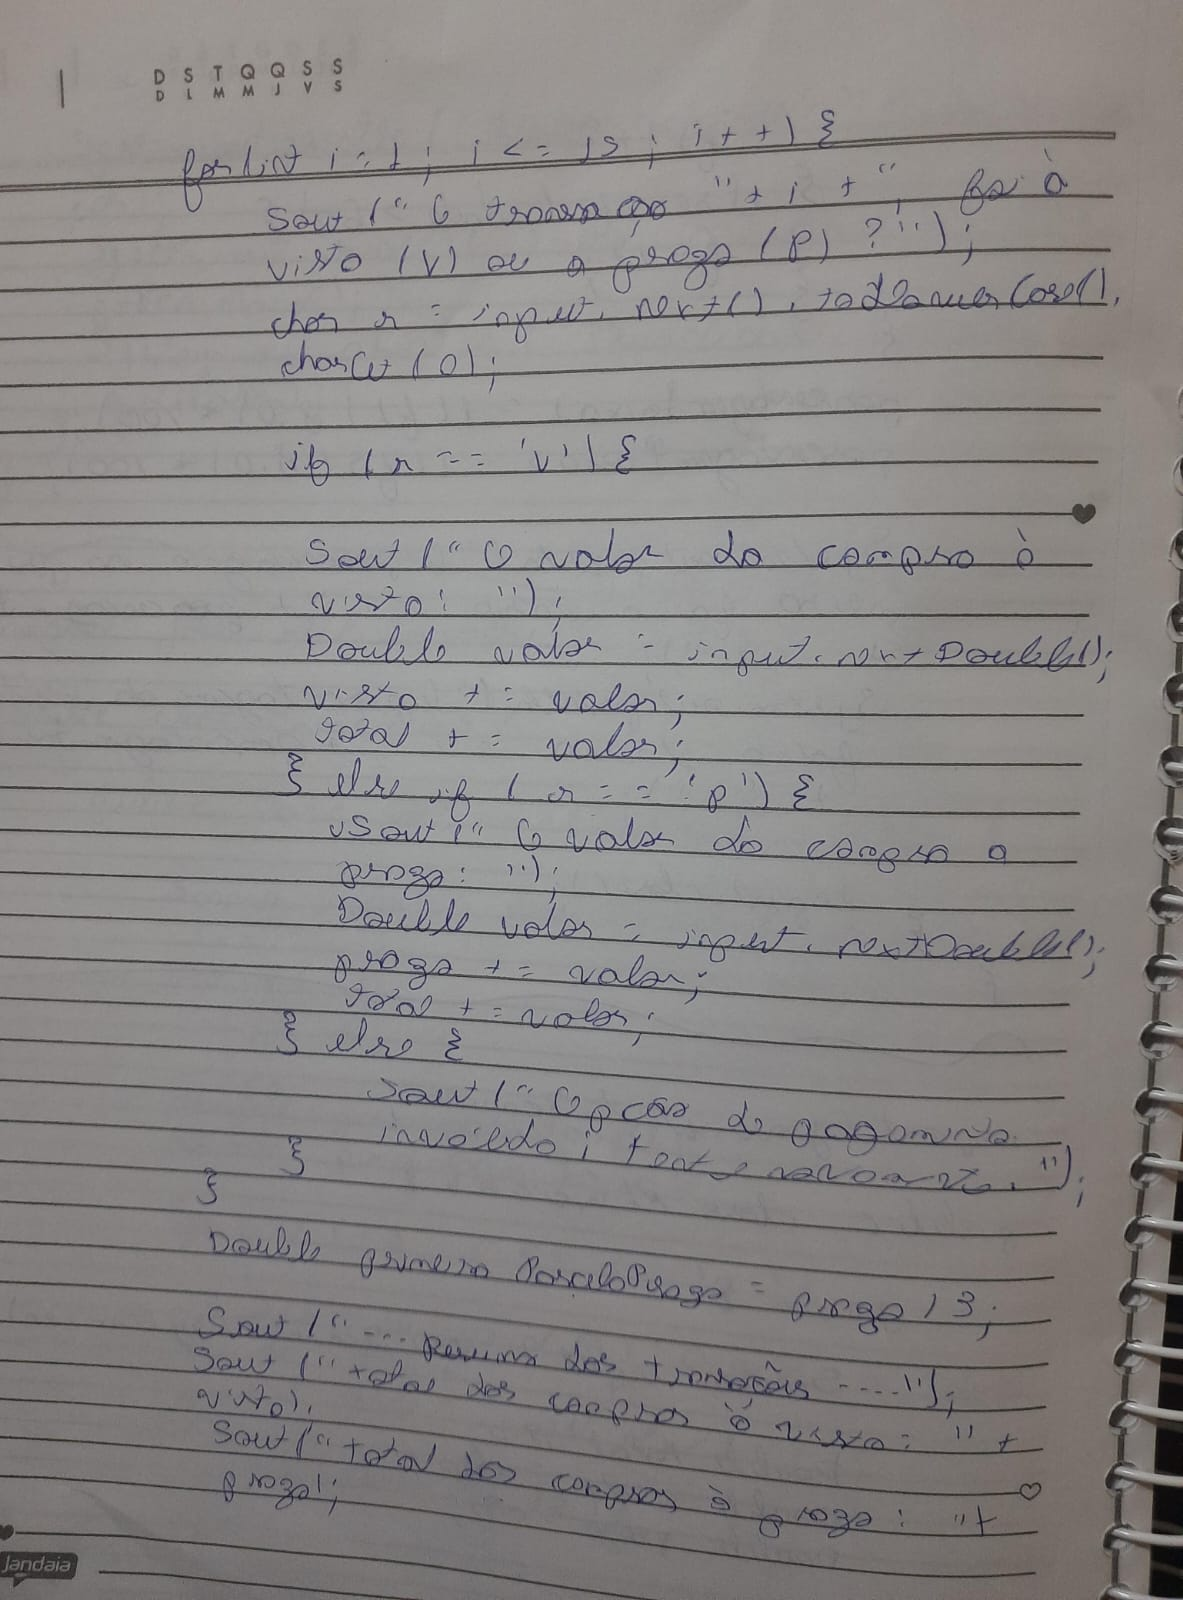 D S T Q Q S S
D L M M J V S
for(int i = 1; i <= 15; i++) {
Sout ("O transação "+ i + ", foi à
visto (V) ou a prazo (P) ?");
char r = input.next().toLowerCase().
charAt(0);
if (r == 'v') {
Sout ("O valor da compra à
visto: ");
Double valor = input.nextDouble();
visto += valor;
total += valor;
} else if (r == 'p') {
Sout ("O valor da compra a
prazo: ");
Double valor = input.nextDouble();
prazo += valor;
total += valor;
} else {
Sout ("Opção de pagamento
inválido; tente novamente.");
}
}
Double primeiraParcelaPrazo = prazo / 3;
Sout ("--- Resumo das transações ----");
Sout ("total das compras à visto: " +
visto);
Sout ("total das compras à prazo: " +
prazo);
Jandaia